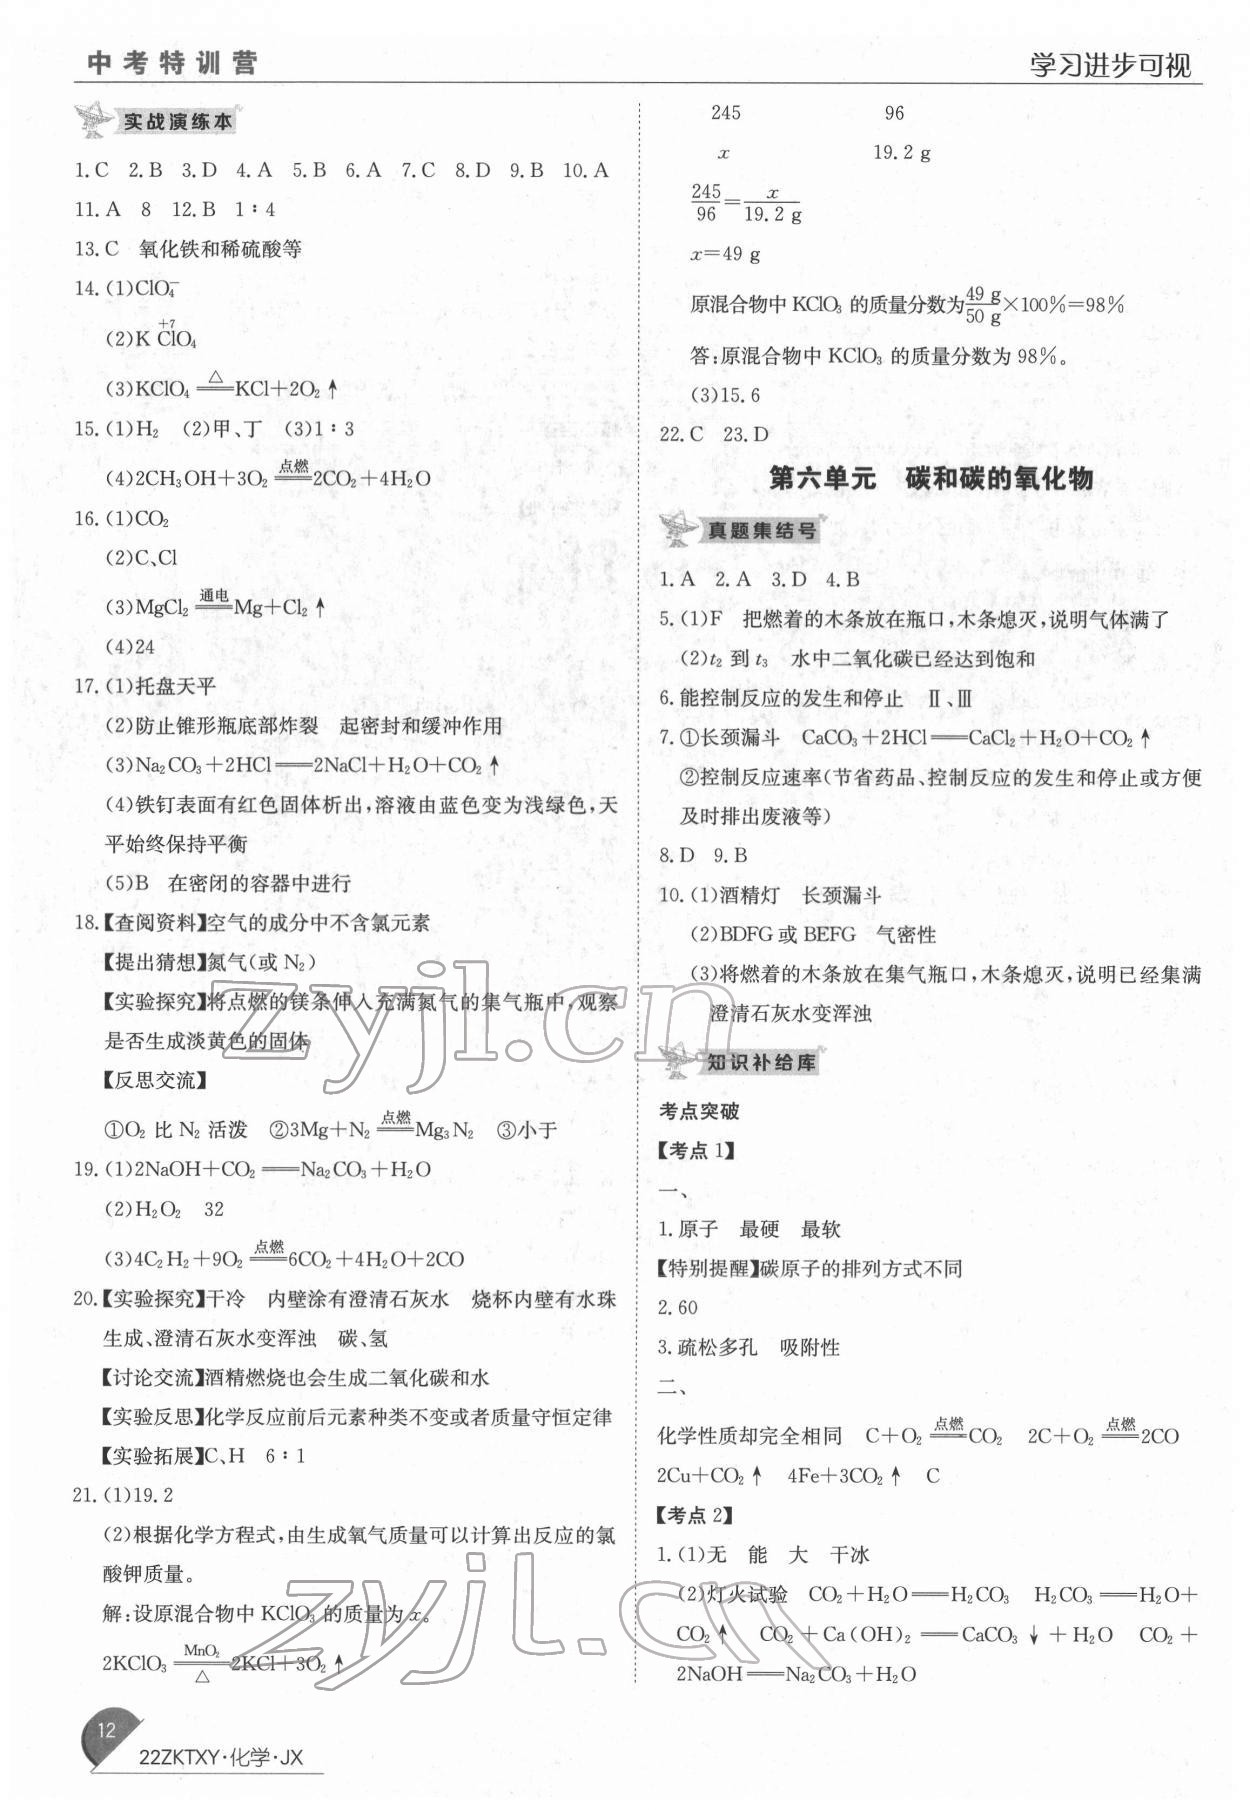 中考特训营
学习进步可视
实战演练本
1.C 2.B 3.D 4.A 5.B 6.A 7.C 8.D 9.B 10.A
11.A 8 12.B 1∶4
13.C 氧化铁和稀硫酸等
14.(1)ClO₄⁻
(2)K Cl(+7)O₄
(3)KClO₄ =△= KCl+2O₂↑
15.(1)H₂ (2)甲、丁 (3)1∶3
(4)2CH₃OH+3O₂ =点燃= 2CO₂+4H₂O
16.(1)CO₂
(2)C、Cl
(3)MgCl₂ =通电= Mg+Cl₂↑
(4)24
17.(1)托盘天平
(2)防止锥形瓶底部炸裂 起密封和缓冲作用
(3)Na₂CO₃+2HCl══2NaCl+H₂O+CO₂↑
(4)铁钉表面有红色固体析出,溶液由蓝色变为浅绿色,天
平始终保持平衡
(5)B 在密闭的容器中进行
18.【查阅资料】空气的成分中不含氯元素
【提出猜想】氮气(或 N₂)
【实验探究】将点燃的镁条伸入充满氮气的集气瓶中,观察
是否生成淡黄色的固体
【反思交流】
①O₂ 比 N₂ 活泼 ②3Mg+N₂ =点燃= Mg₃N₂ ③小于
19.(1)2NaOH+CO₂══Na₂CO₃+H₂O
(2)H₂O₂ 32
(3)4C₂H₂+9O₂ =点燃= 6CO₂+4H₂O+2CO
20.【实验探究】干冷 内壁涂有澄清石灰水 烧杯内壁有水珠
生成、澄清石灰水变浑浊 碳、氢
【讨论交流】酒精燃烧也会生成二氧化碳和水
【实验反思】化学反应前后元素种类不变或者质量守恒定律
【实验拓展】C、H 6∶1
21.(1)19.2
(2)根据化学方程式,由生成氧气质量可以计算出反应的氯
酸钾质量。
解:设原混合物中 KClO₃ 的质量为 x。
2KClO₃ =MnO₂/△= 2KCl+3O₂↑
245 96
x 19.2 g
245/96=x/19.2 g
x=49 g
原混合物中 KClO₃ 的质量分数为 49 g/50 g×100%=98%
答:原混合物中 KClO₃ 的质量分数为 98%。
(3)15.6
22.C 23.D
第六单元 碳和碳的氧化物
真题集结号
1.A 2.A 3.D 4.B
5.(1)F 把燃着的木条放在瓶口,木条熄灭,说明气体满了
(2)t₂ 到 t₃ 水中二氧化碳已经达到饱和
6.能控制反应的发生和停止 Ⅱ、Ⅲ
7.①长颈漏斗 CaCO₃+2HCl══CaCl₂+H₂O+CO₂↑
②控制反应速率(节省药品、控制反应的发生和停止或方便
及时排出废液等)
8.D 9.B
10.(1)酒精灯 长颈漏斗
(2)BDFG 或 BEFG 气密性
(3)将燃着的木条放在集气瓶口,木条熄灭,说明已经集满
澄清石灰水变浑浊
知识补给库
考点突破
【考点 1】
一、
1.原子 最硬 最软
【特别提醒】碳原子的排列方式不同
2.60
3.疏松多孔 吸附性
二、
化学性质却完全相同 C+O₂ =点燃= CO₂ 2C+O₂ =点燃= 2CO
2Cu+CO₂↑ 4Fe+3CO₂↑ C
【考点 2】
1.(1)无 能 大 干冰
(2)灯火试验 CO₂+H₂O══H₂CO₃ H₂CO₃══H₂O+
CO₂↑ CO₂+Ca(OH)₂══CaCO₃↓+H₂O CO₂+
2NaOH══Na₂CO₃+H₂O
zyjl.cn
zyjl.cn
12
22ZKTXY·化学·JX